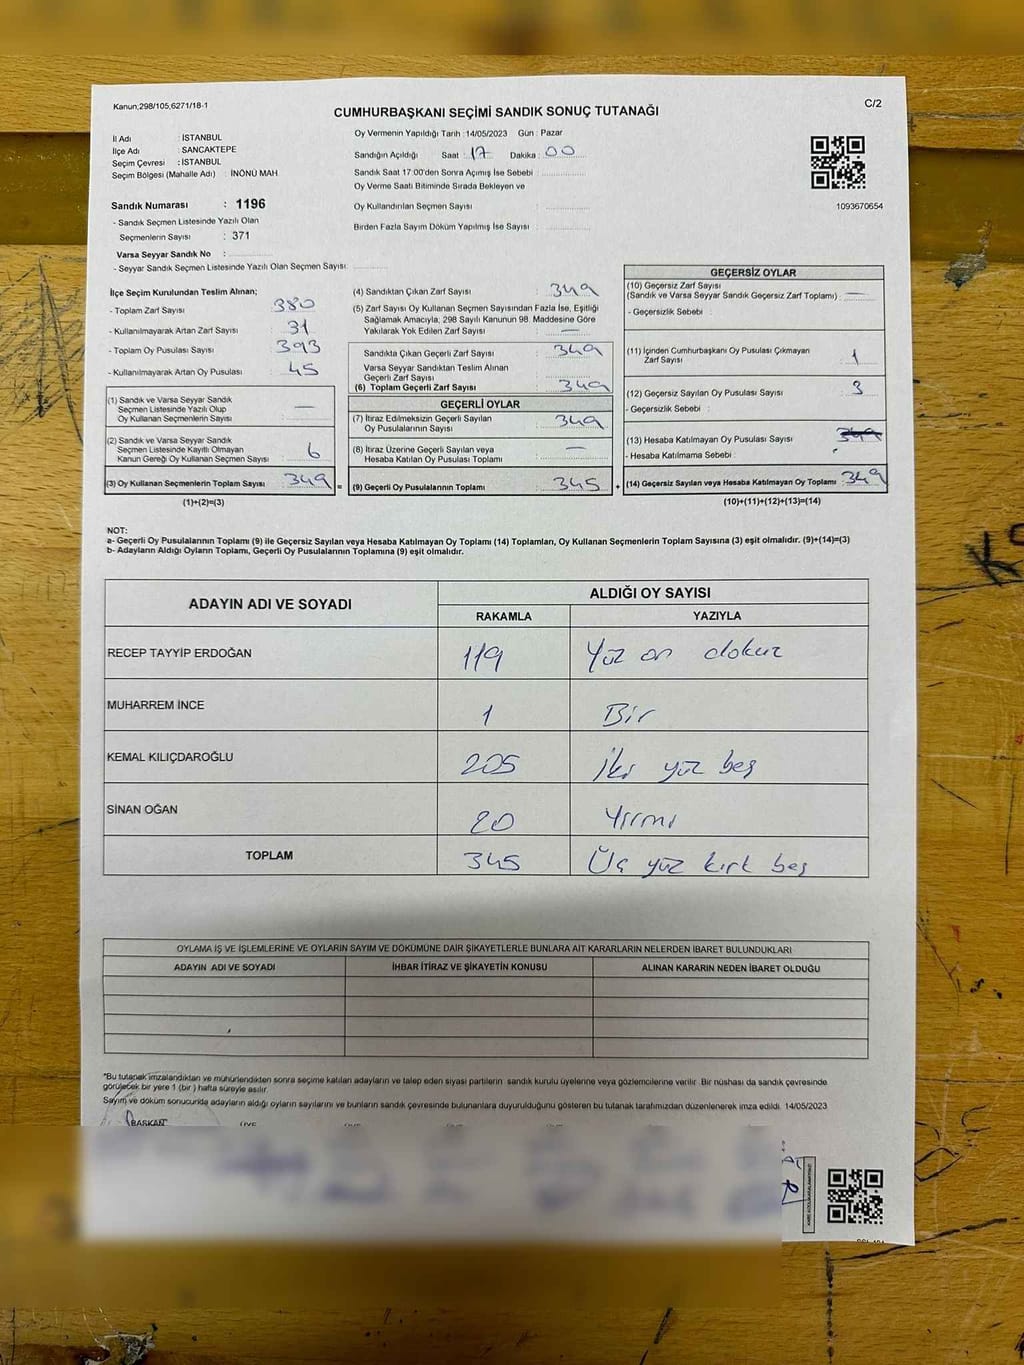 Kanun;298/105,6271/18-1
C/2
CUMHURBAŞKANI SEÇİMİ SANDIK SONUÇ TUTANAĞI
İl Adı : İSTANBUL
İlçe Adı : SANCAKTEPE
Seçim Çevresi : İSTANBUL
Seçim Bölgesi (Mahalle Adı) : İNÖNÜ MAH.
Sandık Numarası : 1196
- Sandık Seçmen Listesinde Yazılı Olan
Seçmenlerin Sayısı : 371
Varsa Seyyar Sandık No :
- Seyyar Sandık Seçmen Listesinde Yazılı Olan Seçmen Sayısı:
Oy Vermenin Yapıldığı Tarih :14/05/2023 Gün : Pazar
Sandığın Açıldığı Saat : 17 Dakika : 00
Sandık Saat 17:00'den Sonra Açımış İse Sebebi :
Oy Verme Saati Bitiminde Sırada Bekleyen ve
Oy Kullandırılan Seçmen Sayısı :
Birden Fazla Sayım Döküm Yapılmış İse Sayısı :
1093670654
İlçe Seçim Kurulundan Teslim Alınan;
- Toplam Zarf Sayısı : 380
- Kullanılmayarak Artan Zarf Sayısı : 31
- Toplam Oy Pusulası Sayısı : 393
- Kullanılmayarak Artan Oy Pusulası : 45
(1) Sandık ve Varsa Seyyar Sandık
Seçmen Listesinde Yazılı Olup
Oy Kullanan Seçmenlerin Sayısı : —
(2) Sandık ve Varsa Seyyar Sandık
Seçmen Listesinde Kayıtlı Olmayan
Kanun Gereği Oy Kullanan Seçmen Sayısı : 6
(3) Oy Kullanan Seçmenlerin Toplam Sayısı : 349
(1)+(2)=(3)
(4) Sandıktan Çıkan Zarf Sayısı : 349
(5) Zarf Sayısı Oy Kullanan Seçmen Sayısından Fazla İse, Eşitliği
Sağlamak Amacıyla, 298 Sayılı Kanunun 98. Maddesine Göre
Yakılarak Yok Edilen Zarf Sayısı : —
Sandıkta Çıkan Geçerli Zarf Sayısı : 349
Varsa Seyyar Sandıktan Teslim Alınan
Geçerli Zarf Sayısı :
(6) Toplam Geçerli Zarf Sayısı : 349
GEÇERLİ OYLAR
(7) İtiraz Edilmeksizin Geçerli Sayılan
Oy Pusulalarının Sayısı : 349
(8) İtiraz Üzerine Geçerli Sayılan veya
Hesaba Katılan Oy Pusulası Toplamı : —
(9) Geçerli Oy Pusulalarının Toplamı : 345
GEÇERSİZ OYLAR
(10) Geçersiz Zarf Sayısı
(Sandık ve Varsa Seyyar Sandık Geçersiz Zarf Toplamı) : —
- Geçersizlik Sebebi :
(11) İçinden Cumhurbaşkanı Oy Pusulası Çıkmayan
Zarf Sayısı : 1
(12) Geçersiz Sayılan Oy Pusulası Sayısı : 3
- Geçersizlik Sebebi :
(13) Hesaba Katılmayan Oy Pusulası Sayısı : 349
- Hesaba Katılmama Sebebi :
(14) Geçersiz Sayılan veya Hesaba Katılmayan Oy Toplamı : 349
(10)+(11)+(12)+(13)=(14)
NOT:
a- Geçerli Oy Pusulalarının Toplamı (9) ile Geçersiz Sayılan veya Hesaba Katılmayan Oy Toplamı (14) Toplamları, Oy Kullanan Seçmenlerin Toplam Sayısına (3) eşit olmalıdır. (9)+(14)=(3)
b- Adayların Aldığı Oyların Toplamı, Geçerli Oy Pusulalarının Toplamına (9) eşit olmalıdır.
ADAYIN ADI VE SOYADI ALDIĞI OY SAYISI
RAKAMLA YAZIYLA
RECEP TAYYİP ERDOĞAN 119 Yüz on dokuz
MUHARREM İNCE 1 Bir
KEMAL KILIÇDAROĞLU 205 İki yüz beş
SİNAN OĞAN 20 Yirmi
TOPLAM 345 Üç yüz kırk beş
OYLAMA İŞ VE İŞLEMLERİNE VE OYLARIN SAYIM VE DÖKÜMÜNE DAİR ŞİKAYETLERLE BUNLARA AİT KARARLARIN NELERDEN İBARET BULUNDUKLARI
ADAYIN ADI VE SOYADI İHBAR İTİRAZ VE ŞİKAYETİN KONUSU ALINAN KARARIN NEDEN İBARET OLDUĞU
*Bu tutanak imzalandıktan ve mühürlendikten sonra seçime katılan adayların ve talep eden siyasi partilerin sandık kurulu üyelerine veya gözlemcilerine verilir. Bir nüshası da sandık çevresinde
görülecek bir yere 1 (bir ) hafta süreyle asılır.
Sayım ve döküm sonucunda adayların aldığı oyların sayılarını ve bunların sandık çevresinde bulunanlara duyurulduğunu gösteren bu tutanak tarafımızdan düzenlenerek imza edildi. 14/05/2023
BAŞKAN